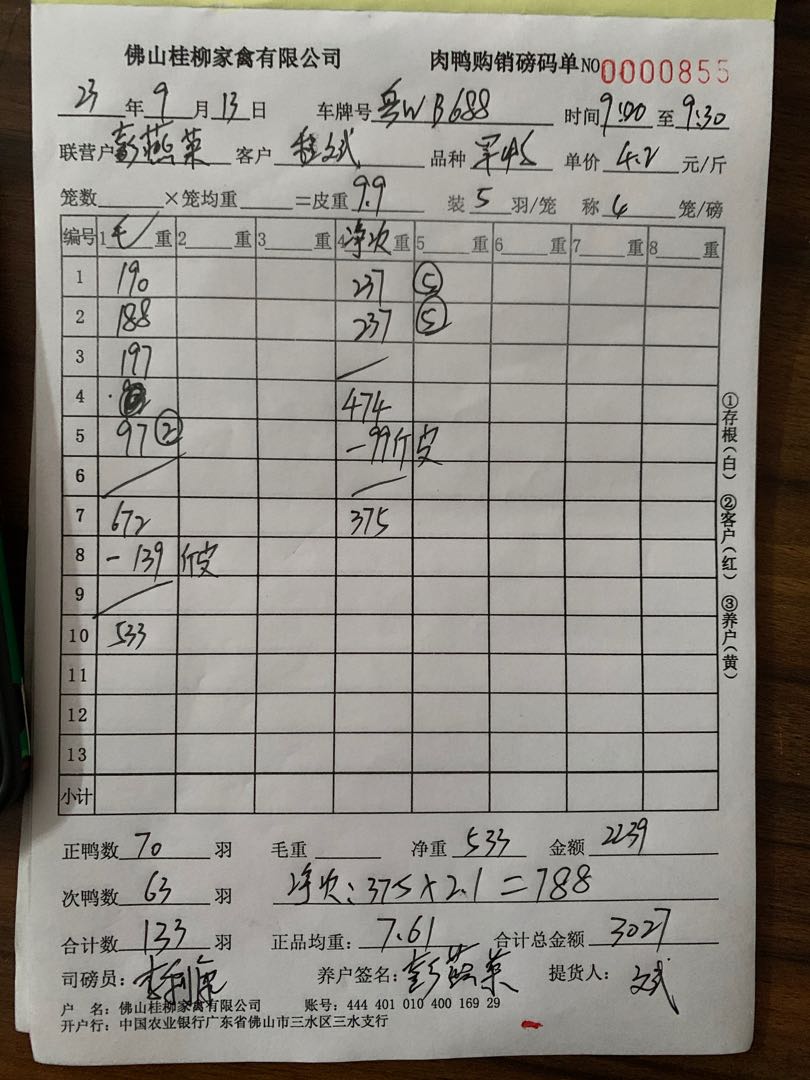 佛山桂柳家禽有限公司 肉鸭购销磅码单 NO 0000855
23 年 9 月 13 日 车牌号 粤WB688 时间 9:00 至 9:30
联营户 彭燕英 客户 文斌 品种 单价 4.2 元/斤
笼数 ×笼均重 =皮重 9.9 装 5 羽/笼 称 4 笼/磅
编号 1 毛 重 2 重 3 重 4 净次 重 5 重 6 重 7 重 8 重
1 190 237 ⑤
2 188 237 ⑤
3 197
4 474
5 97 ② -99斤皮
6
7 672 375
8 -139 斤皮
9
10 533
11
12
13
小计
正鸭数 70 羽 毛重 净重 533 金额 2239
次鸭数 63 羽 净次:375×2.1=788
合计数 133 羽 正品均重: 7.61 合计总金额 3027
司磅员: 养户签名: 彭燕英 提货人: 文斌
户 名: 佛山桂柳家禽有限公司 账号: 444 401 010 400 169 29
开户行: 中国农业银行广东省佛山市三水区三水支行
①存根(白) ②客户(红) ③养户(黄)